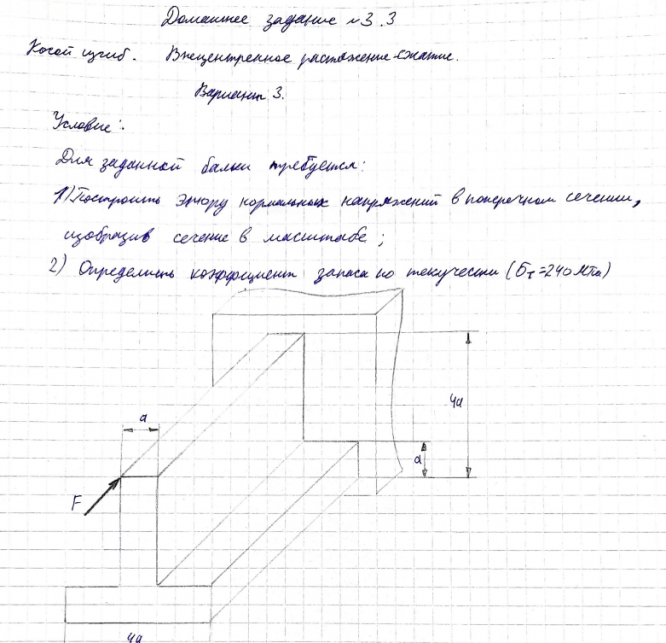 Домашнее задание №3.3
Косой изгиб. Внецентренное растяжение-сжатие.
Вариант 3.
Условие:
Для заданной балки требуется:
1) Построить эпюру нормальных напряжений в поперечном сечении,
изобразив сечение в масштабе;
2) Определить коэффициент запаса по текучести (σт=240 МПа)
a
4a
a
F
4a